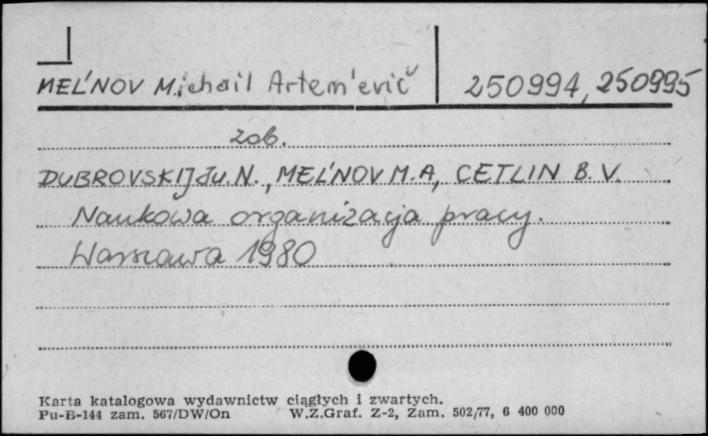 MEL'NOV Michail Artem'evič 250994, 250995
zob.
DUBROVSKIJ Ju. N., MEL'NOV M. A, CETLIN B. V.
Naukowa organizacja pracy.
Warszawa 1980
Karta katalogowa wydawnictw ciągłych i zwartych.
Pu-B-144 zam. 567/DW/On W.Z.Graf. Z-2, Zam. 502/77, 6 400 000